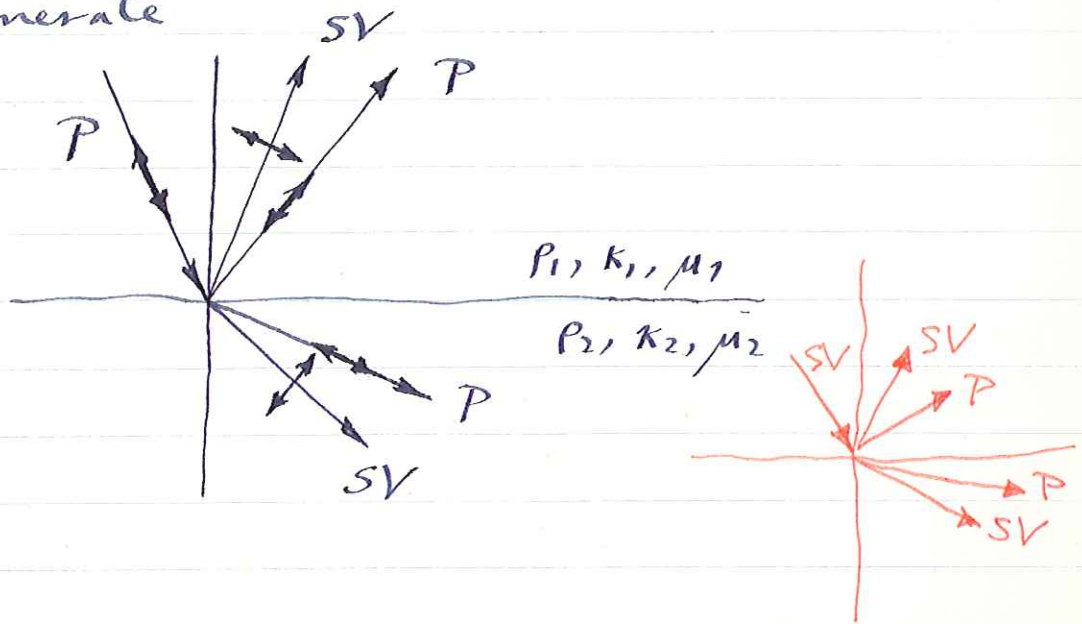 nerale
SV
P
P
ρ1, K1, μ1
ρ2, K2, μ2
P
SV
SV
SV
P
P
SV